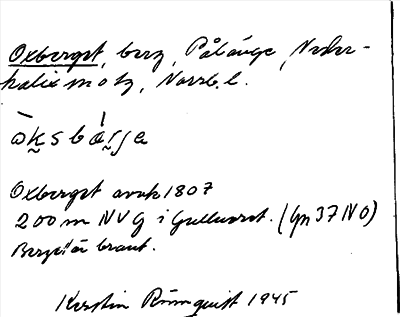 Oxberget, berg, Pålänge, Neder-
kalix m o tg, Norrb. l.
Oxberget avvk 1807
200 m NV G i Gulluvarst. (Gn 37 NO)
Berget är brant.
Kerstin Rönnquist 1945